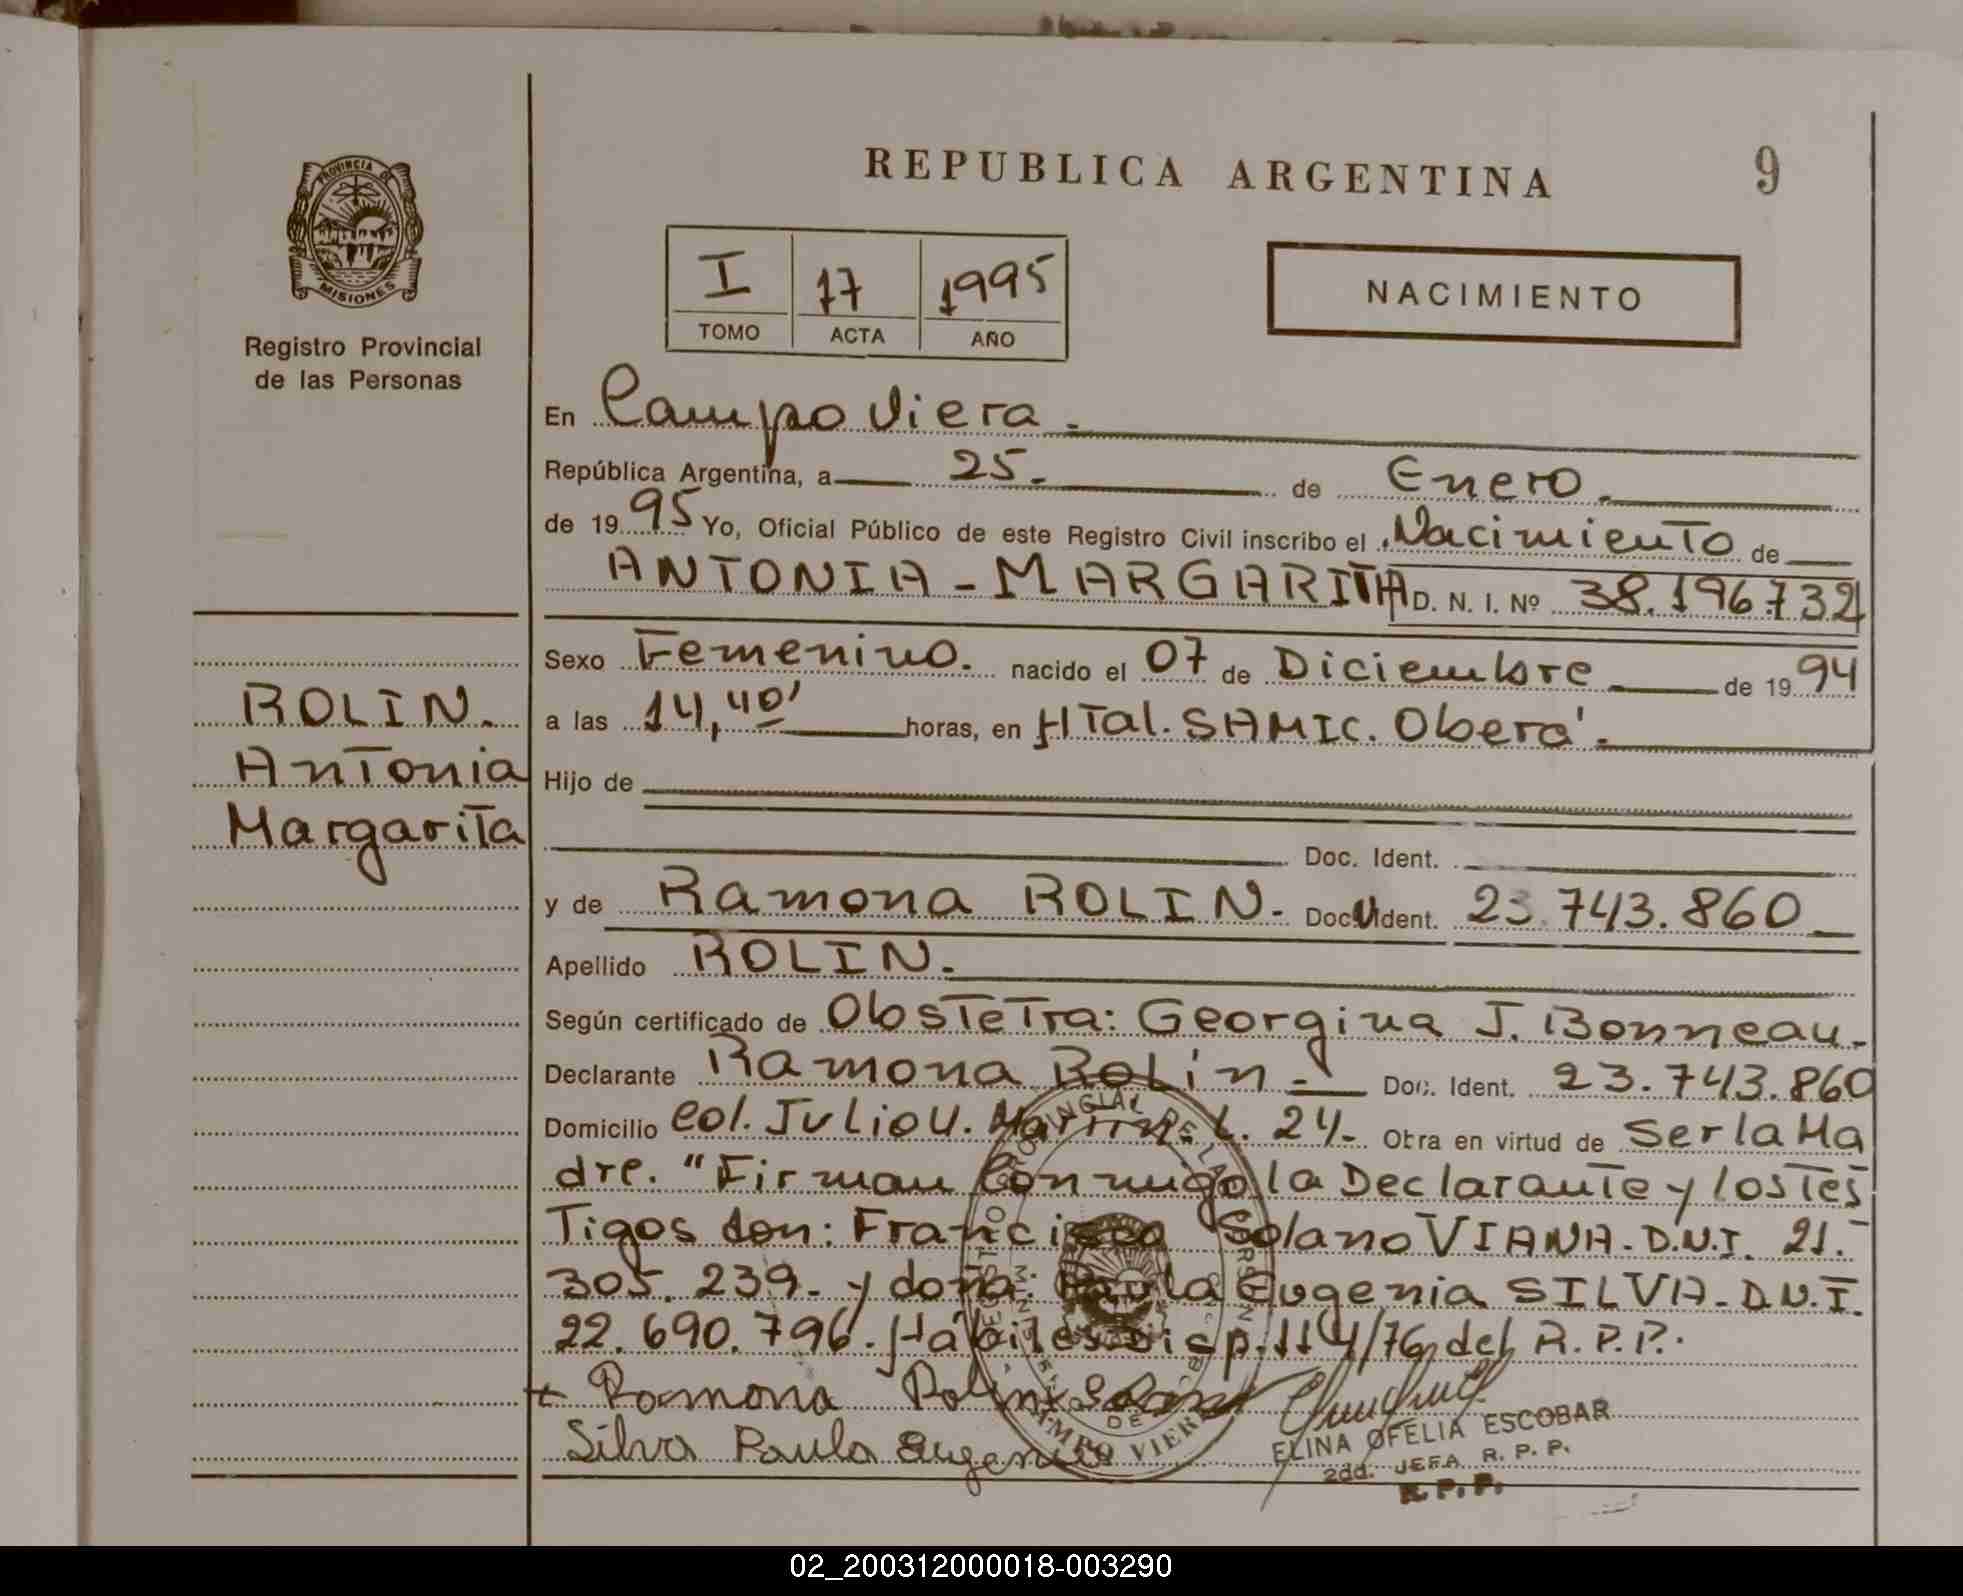 REPUBLICA ARGENTINA
9
PROVINCIA DE
MISIONES
Registro Provincial
de las Personas
I 17 1995
TOMO ACTA AÑO
NACIMIENTO
En Campo Viera.
República Argentina, a 25. de Enero.
de 19 95 Yo, Oficial Público de este Registro Civil inscribo el Nacimiento de
ANTONIA - MARGARITA D. N. I. Nº 38.196.732
Sexo Femenino. nacido el 07 de Diciembre de 19 94
a las 14,40' horas, en HTal. SAMIC. Oberá.
Hijo de
Doc. Ident.
y de Ramona ROLIN. Doc. Ident. 23.743.860
Apellido ROLIN.
ROLIN.
Antonia
Margarita
Según certificado de Obstetra: Georgina J. Bonneau.
Declarante Ramona Rolin. Doc. Ident. 23.743.860
Domicilio Col. Julio U. Martin. L. 24. Obra en virtud de Ser la Ma
dre. "Firman Conmigo la Declarante y los Tes
Tigos don: Francisco Solano VIANA. D.N.I. 21.
305.239. y doña. Paula Eugenia SILVA. D.N.I.
22.690.796. Hábiles Disp. 114/76 del R.P.P.
+ Ramona Rolin
Silva Paula Eugenia
CAMPO VIERA
ELINA OFELIA ESCOBAR
2da. JEFA R. P. P.
R. P. P.
02_200312000018-003290